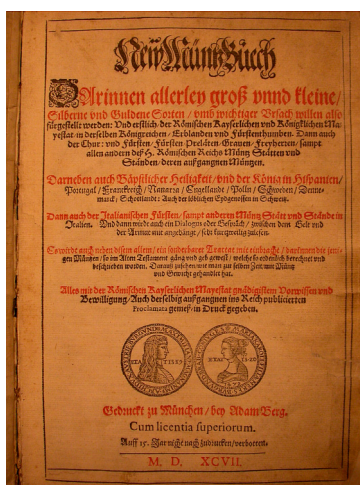 New Müntz Buech
Darinnen allerley groß vnnd kleine/
Silberne vnd Guldene Sorten / vmb wichtiger Vrsach willen also
fürgestellt werden: Vnd erstlich der Römischen Kayserlichen vnd Königklichen May
estat in derselben Königreichen/ Erblanden vnd Fürstenthumben. Dann auch
der Chur: vnd Fürsten/ Fürsten Prelaten/ Grauen/ Freyherren/ sampt
allen andern deß H. Römischen Reichs Müntz Stätten vnd
Ständen/ deren außgangnen Müntzen.
Darneben auch Bäpstlicher Heiligkeit/ vnd der König in Hispanien/
Portugal/ Franckreich/ Nauaria/ Engellandt/ Polln/ Schweden/ Denne-
marck/ Schottlandt: Auch der löblichen Eydgenossen in Schweitz.
Dann auch der Italianischen Fürsten/ sampt andern Müntz Stätt vnd Stände in
Italien. Vnd dann wirdt auch ein Dialogus oder Gespräch/ zwischen dem Gelt vnd
der Armut mit angehängt/ sehr kurtzweilig zulesen.
So wirdt auch neben disem allem/ ein sonderbarer Tractat mit einbracht/ darinnen die jeni-
gen Müntzen/ so im Alten Testament gäng vnd geb gewest/ welche so ordenlich berechnet vnd
beschrieben worden. Darauß zusehen wie man zur selben Zeit mit Müntz
vnd Gewicht gehandlet hat.
Alles mit der Römischen Kayserlichen Mayestat gnädigistem Vorwissen vnd
Bewilligung/ Auch derselbig außgangnen ins Reich publicierten
Proclamata gemeß/ in Druck gegeben.
Gedruckt zu München/ bey Adam Berg.
Cum licentia superiorum.
Auff 15. Jar nicht nach zudrucken/ verbotten.
M. D. XCVII.